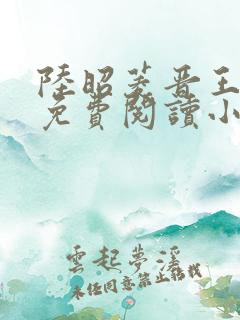 陸昭菱晋王
免費閱讀小
雲起夢溪
未經同意禁止轉載